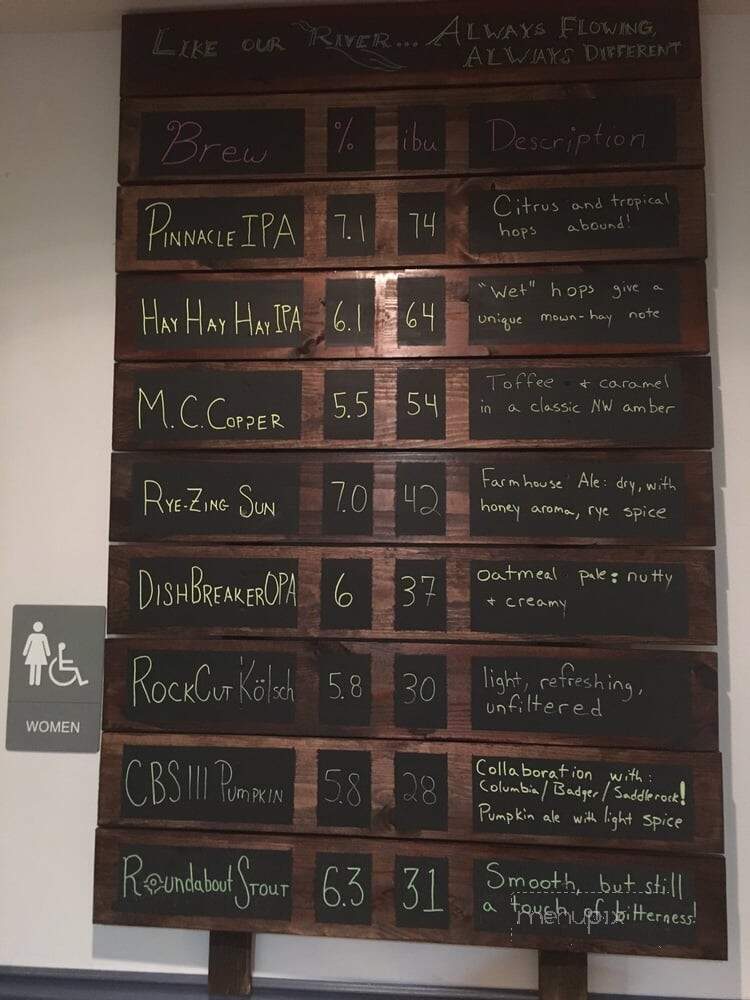 LIKE OUR RIVER... ALWAYS FLOWING,
ALWAYS DIFFERENT
Brew % ibu Description
PINNACLE IPA 7.1 74 Citrus and tropical
hops abound!
HAY HAY HAY IPA 6.1 64 "Wet" hops give a
unique mown-hay note
M.C. COPPER 5.5 54 Toffee + caramel
in a classic NW amber
RYE-ZING SUN 7.0 42 Farmhouse Ale: dry, with
honey aroma, rye spice
DISHBREAKER OPA 6 37 oatmeal pale: nutty
+ creamy
ROCKCUT Kölsch 5.8 30 light, refreshing,
unfiltered
CBS III PUMPKIN 5.8 28 Collaboration with:
Columbia/Badger/Saddlerock!
Pumpkin ale with light spice
Roundabout STOUT 6.3 31 Smooth, but still
a touch of bitterness!
menupix
WOMEN